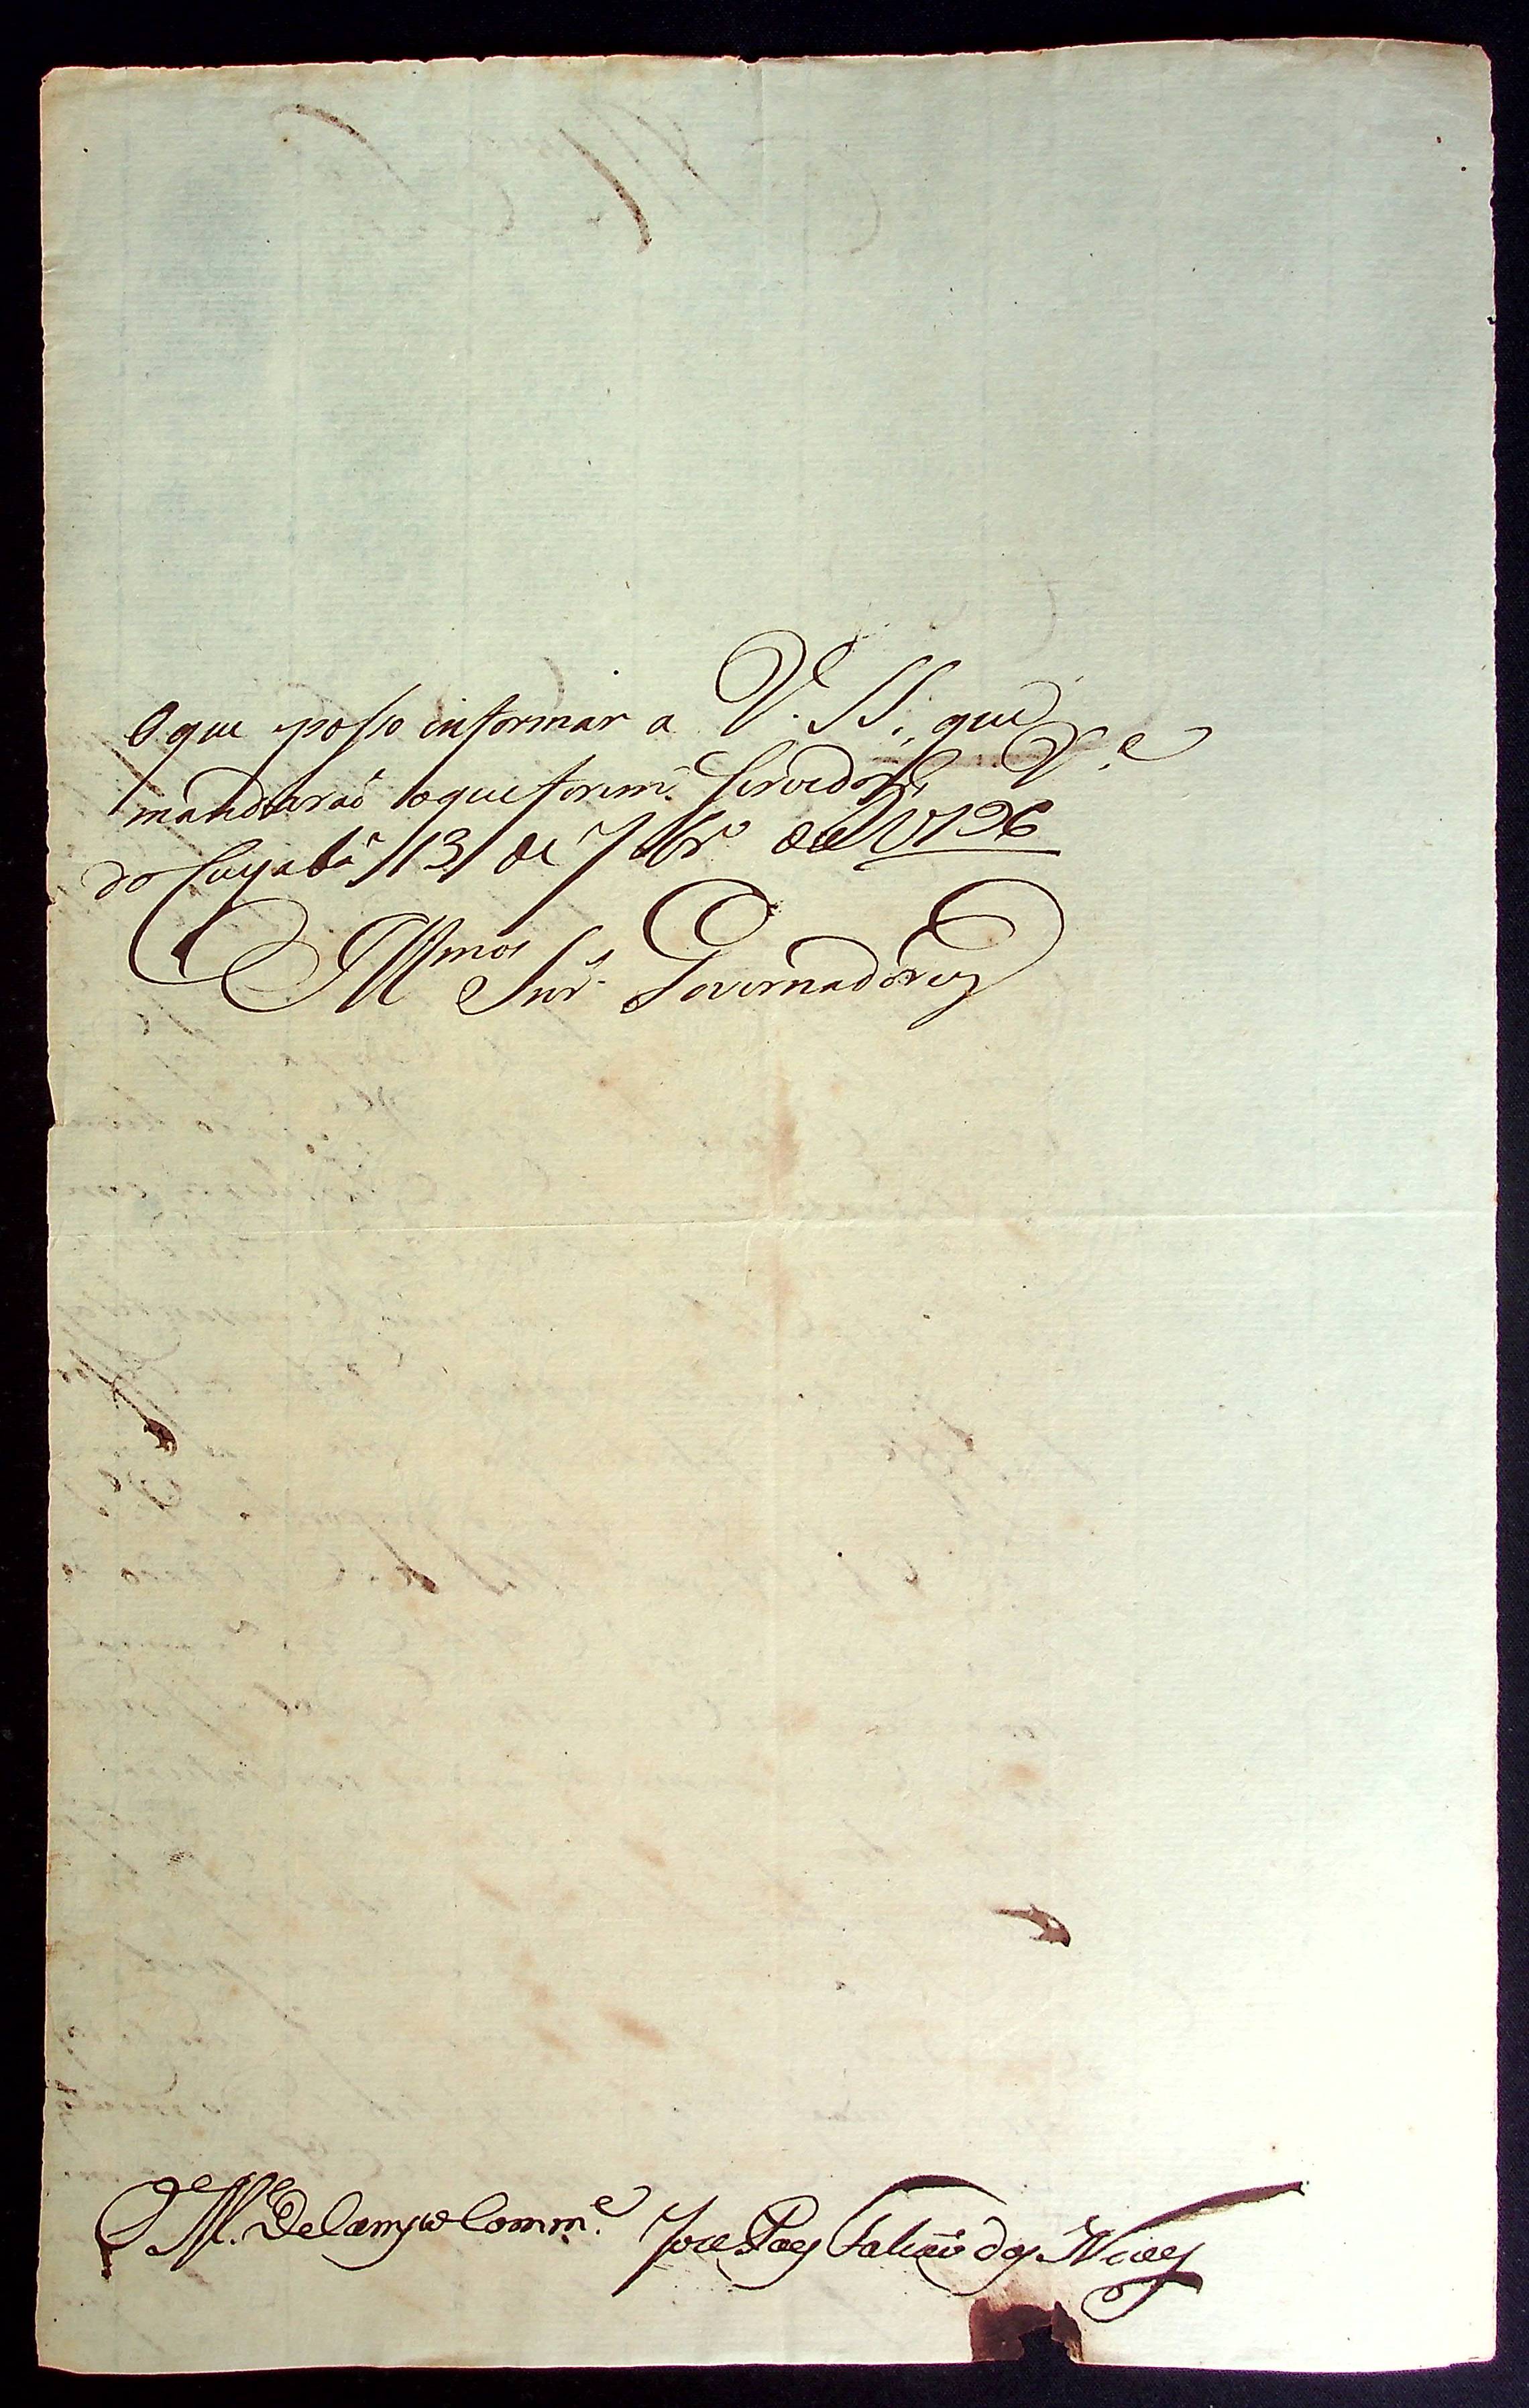 O que posso informar a V. SS., que
mandaraõ o que forem Servidos. V.ª
do Cuyabá 13 de 7br.º de 1796
Ill.mos Snr.s Governadores
O M.e De Campo Comm.e Joze Paes Falcaõ das Neves